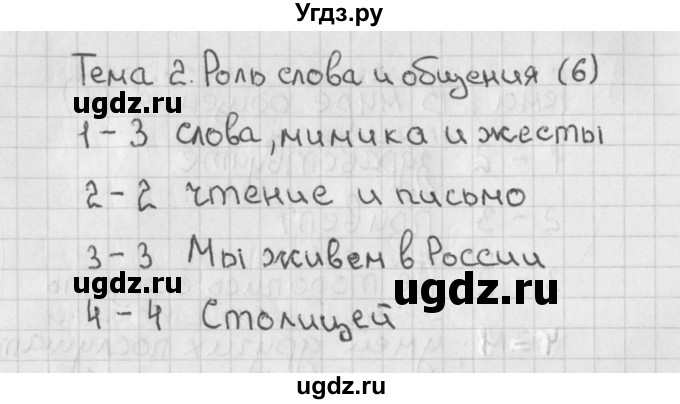 Угдз.ру
Тема 2. Роль слова и общения (6)
ugdz.ru
1 – 3 слова, мимика и жесты
2 – 2 чтение и письмо
3 – 3 Мы живем в России
ugdz.ru
ugdz.ru
4 – 4 Столицей
ugdz.ru